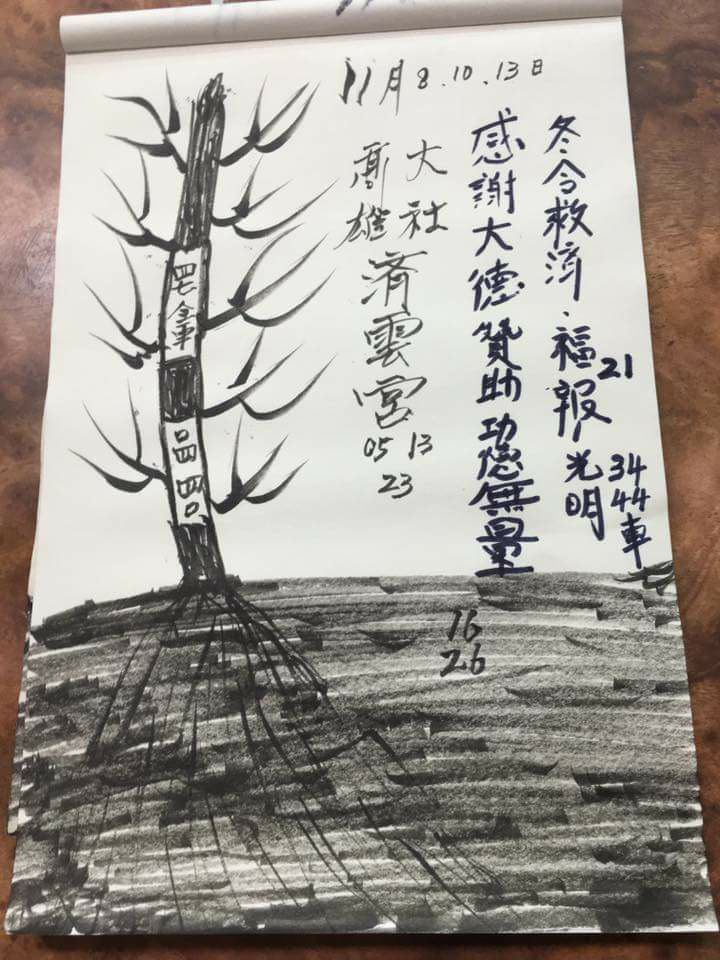 11月8.10.13日
冬令救濟、福報
21
光明
34
44車
感謝大德贊助功德無量
大社
高雄
濟雲宮
05 13
23
16
26
全車